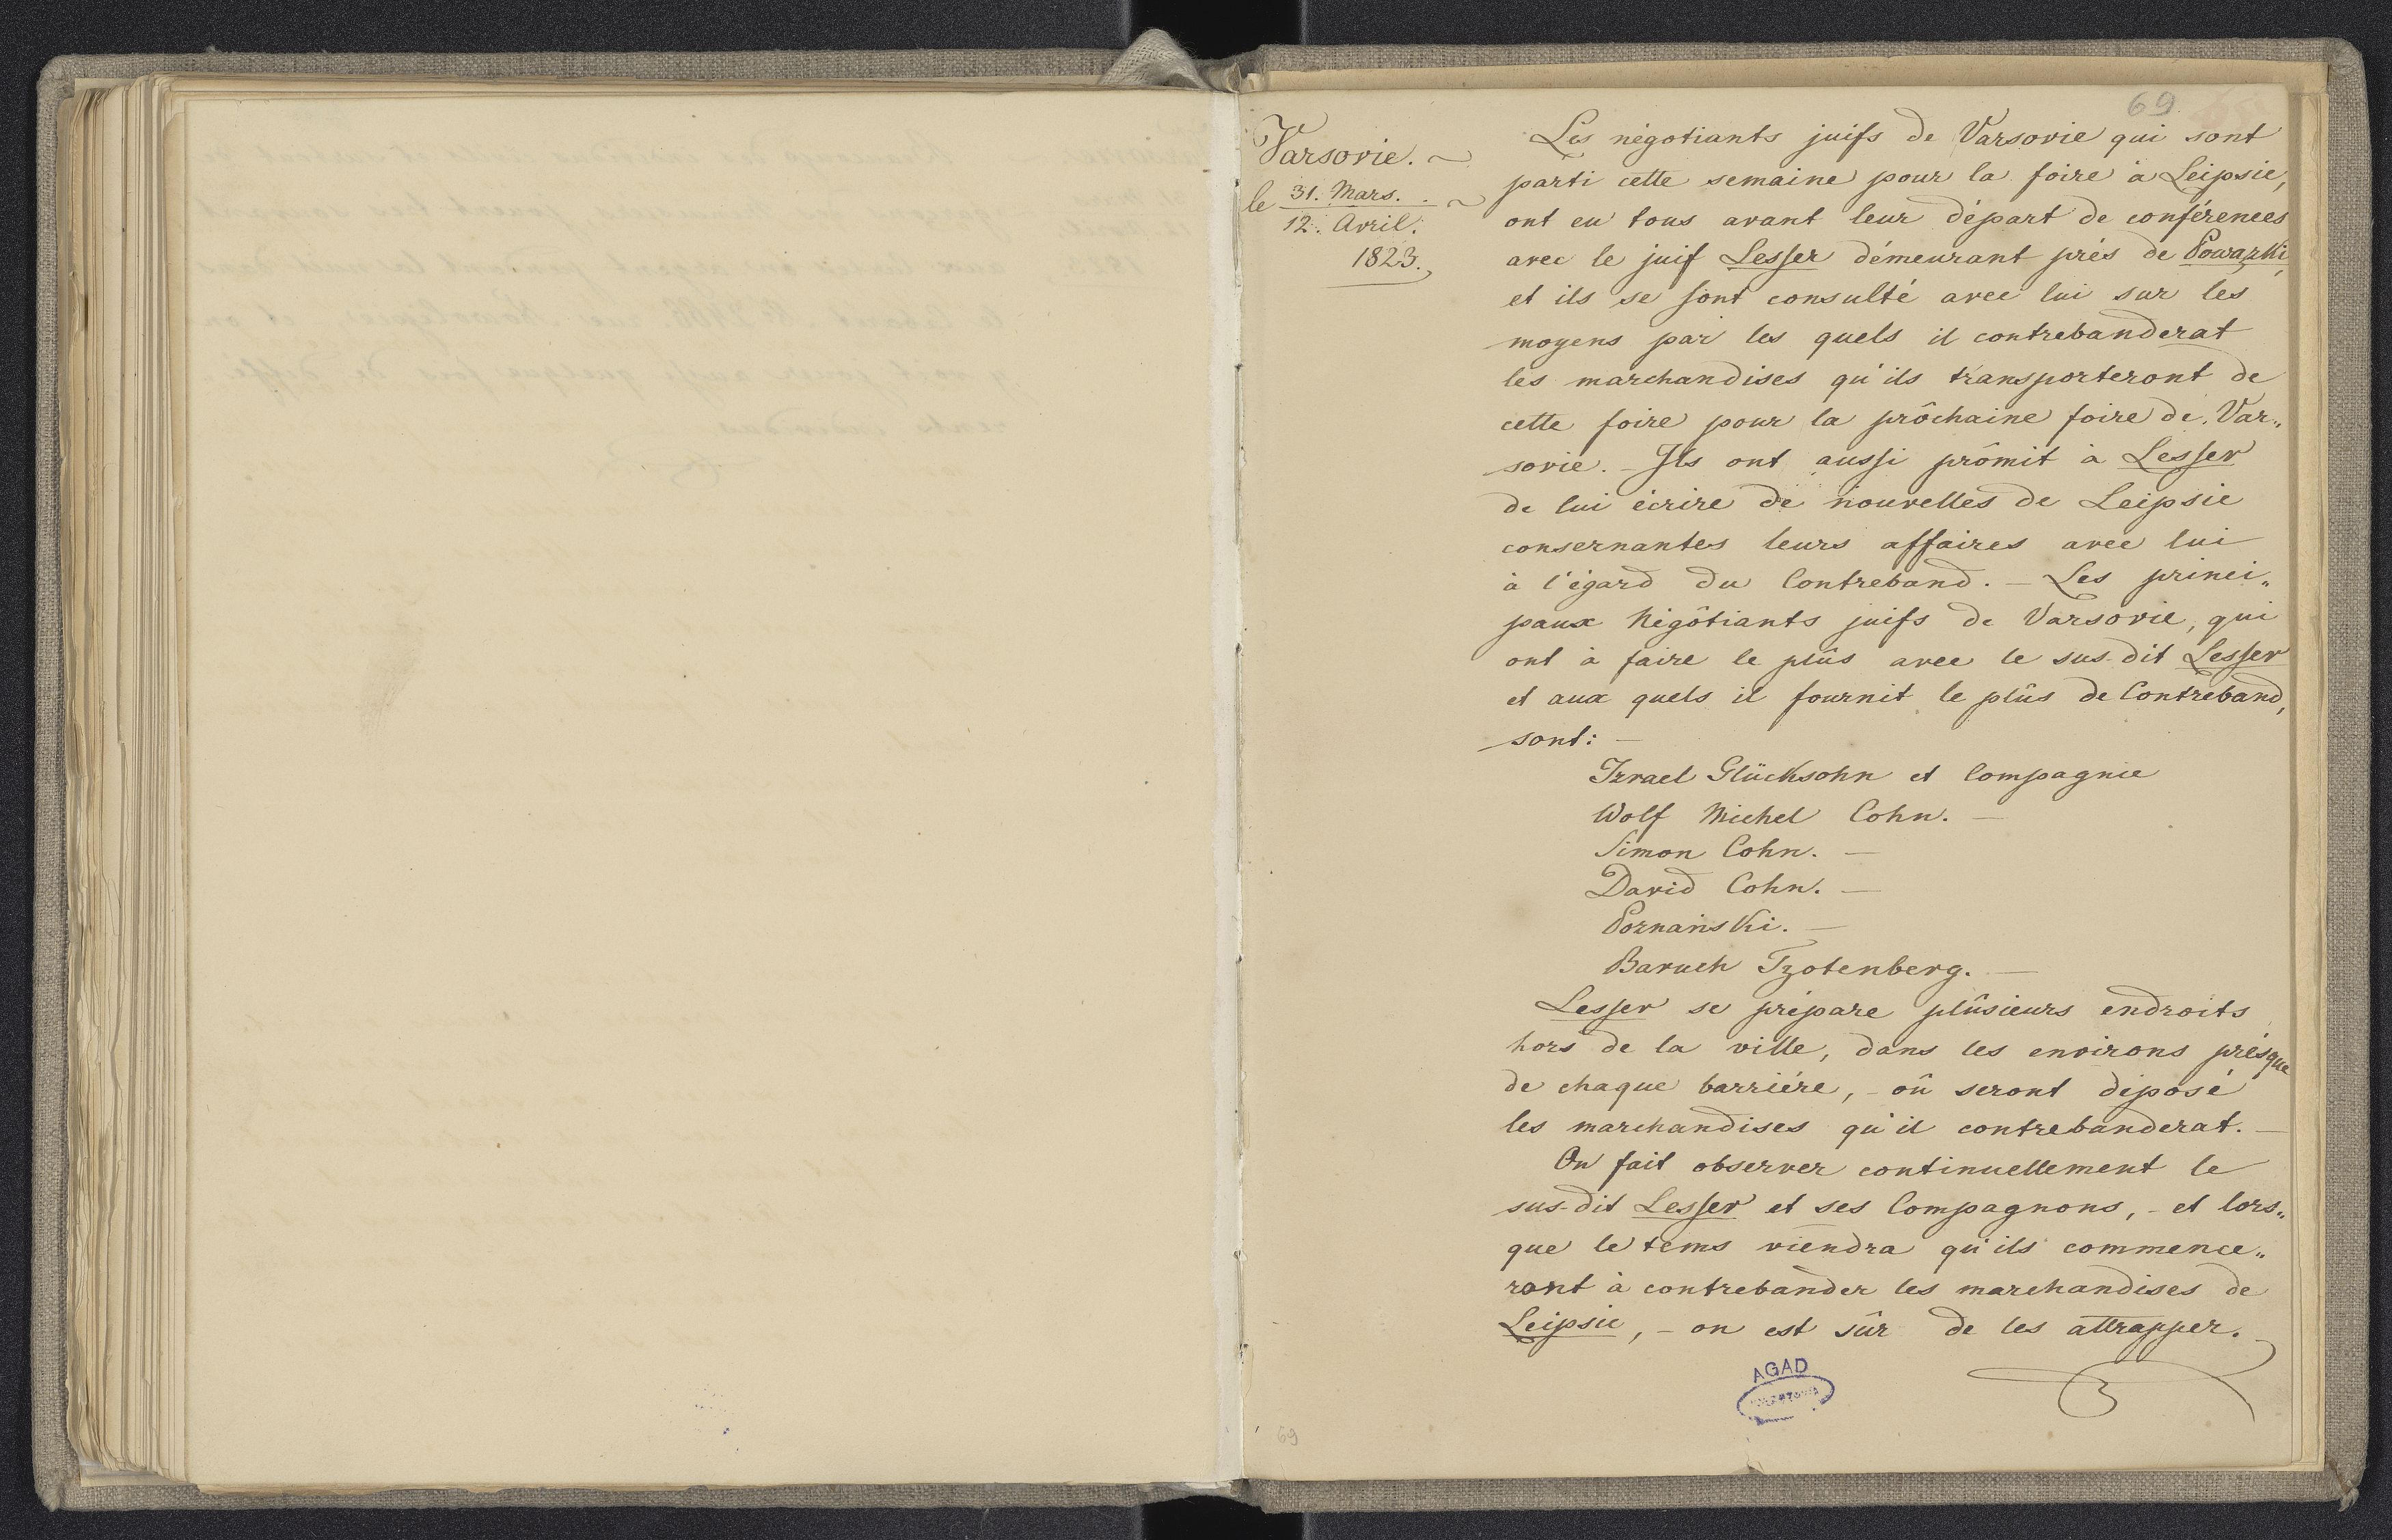 69
Varsovie.
le 31. Mars.
12. Avril.
1823.
Les négotiants juifs de Varsovie qui sont
parti cette semaine pour la foire à Leipsie,
ont eu tous avant leur départ de conférences
avec le juif Lesser démeurant prés de Powązki,
et ils se sont consulté avec lui sur les
moyens par les quels il contrebanderat
les marchandises qu'ils transporteront de
cette foire pour la prôchaine foire de Var„
sovie. – Ils ont aussi prômit à Lesser
de lui écrire de nouvelles de Leipsie
consernantes leurs affaires avec lui
à l'égard du Contreband. – Les princi„
paux Négôtiants juifs de Varsovie, qui
ont à faire le plûs avec le sus-dit Lesser
et aux quels il fournit le plûs de Contreband,
sont: –
Izrael Glücksohn et Compagnie
Wolf Michel Cohn. –
Simon Cohn. –
David Cohn. –
Poznański. –
Baruch Tzotenberg. –
Lesser se prépare plûsieurs endroits
hors de la ville, dans les environs présque
de chaque barriére, – oû seront déposé
les marchandises qu'il contrebanderat. –
On fait observer continuellement le
sus-dit Lesser et ses Compagnons, – et lors„
que le tems viendra qu'ils commence„
ront à contrebander les marchandises de
Leipsie, – on est sûr de les attrapper.
AGAD
69